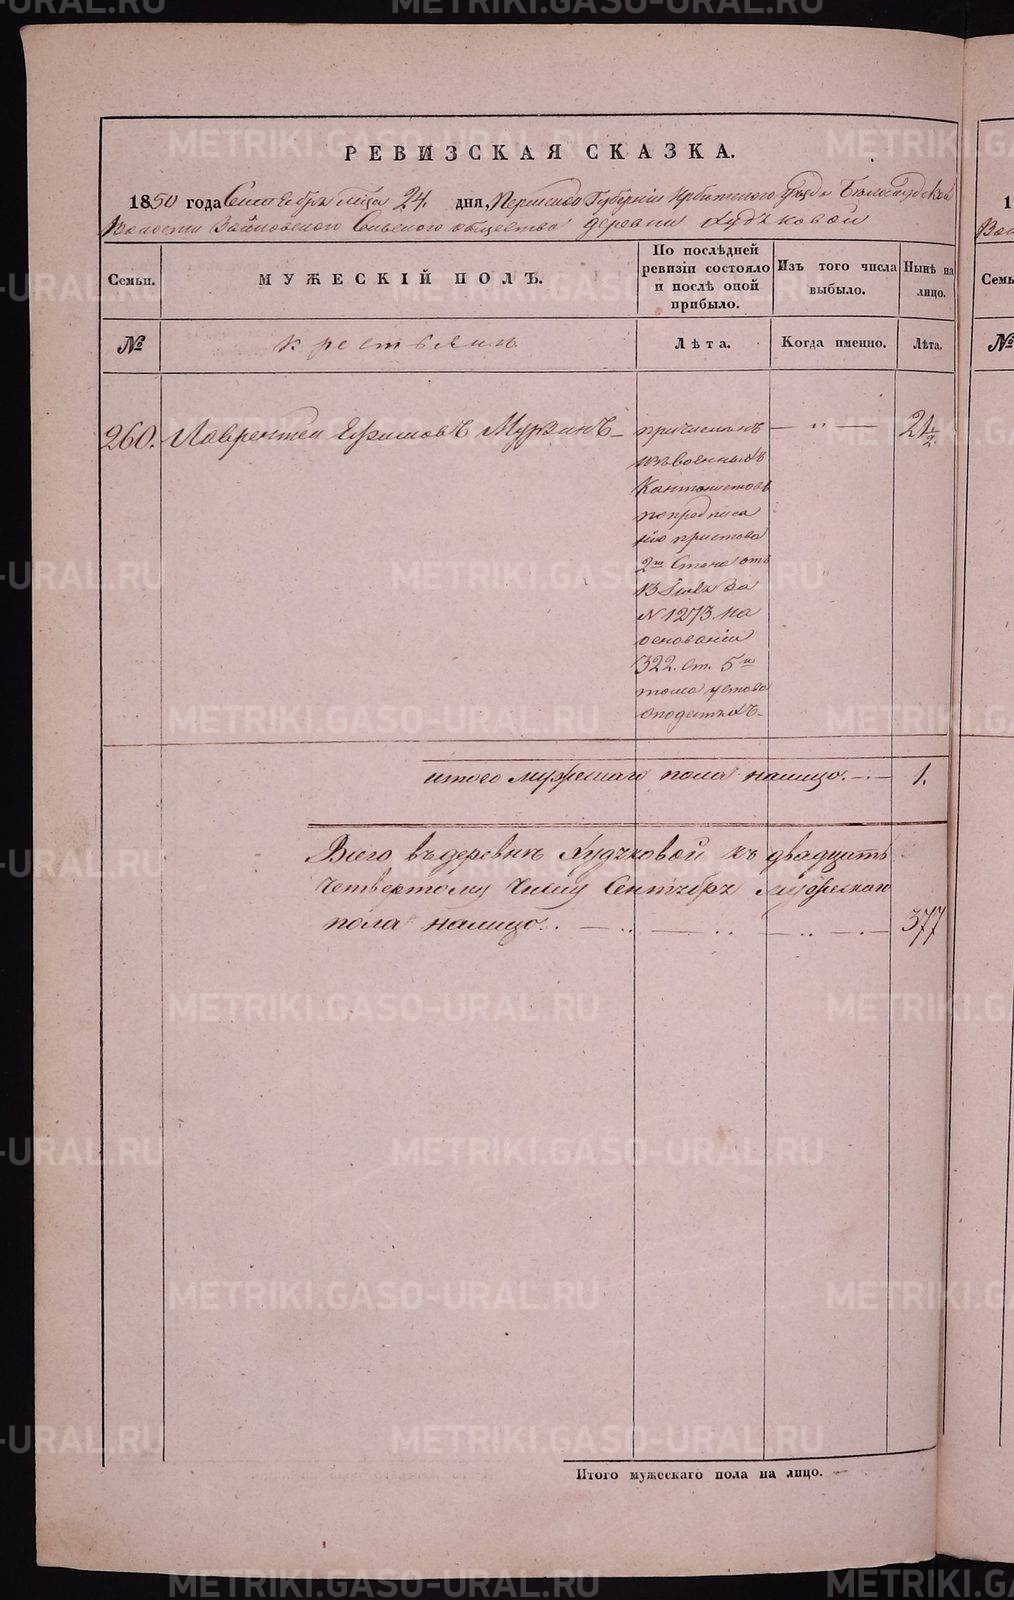 METRIKI.GASO-URAL.RU
РЕВИЗСКАЯ СКАЗКА.
1850 года Сентября м-ца 24. дня, Пермской Губернии Ирбитского уезда
Волости Зайковского Сельского общества деревни Худяковой
Семьи.
МУЖЕСКІЙ ПОЛЪ.
По послѣдней ревизіи состояло и послѣ оной прибыло.
Изъ того числа выбыло.
Нынѣ на лицо.
№
крестьянъ
Лѣта.
Когда именно.
Лѣта.
260. Лаврентей Ефимовъ Мурзинъ
причисленъ
изъ военныхъ
Кантонистовъ
по предписа
нію пристава
2го Стана отъ
13 за
№ 1273 на
основаніи
322. ст. 5го
тома устава
о податяхъ
24 1/2.
итого мужескаго пола налицо. 1.
Всего въ деревнѣ Худяковой къ двадцать
четвертому числу Сентября мужескаго
пола налицо. 377
Итого мужескаго пола на лицо.